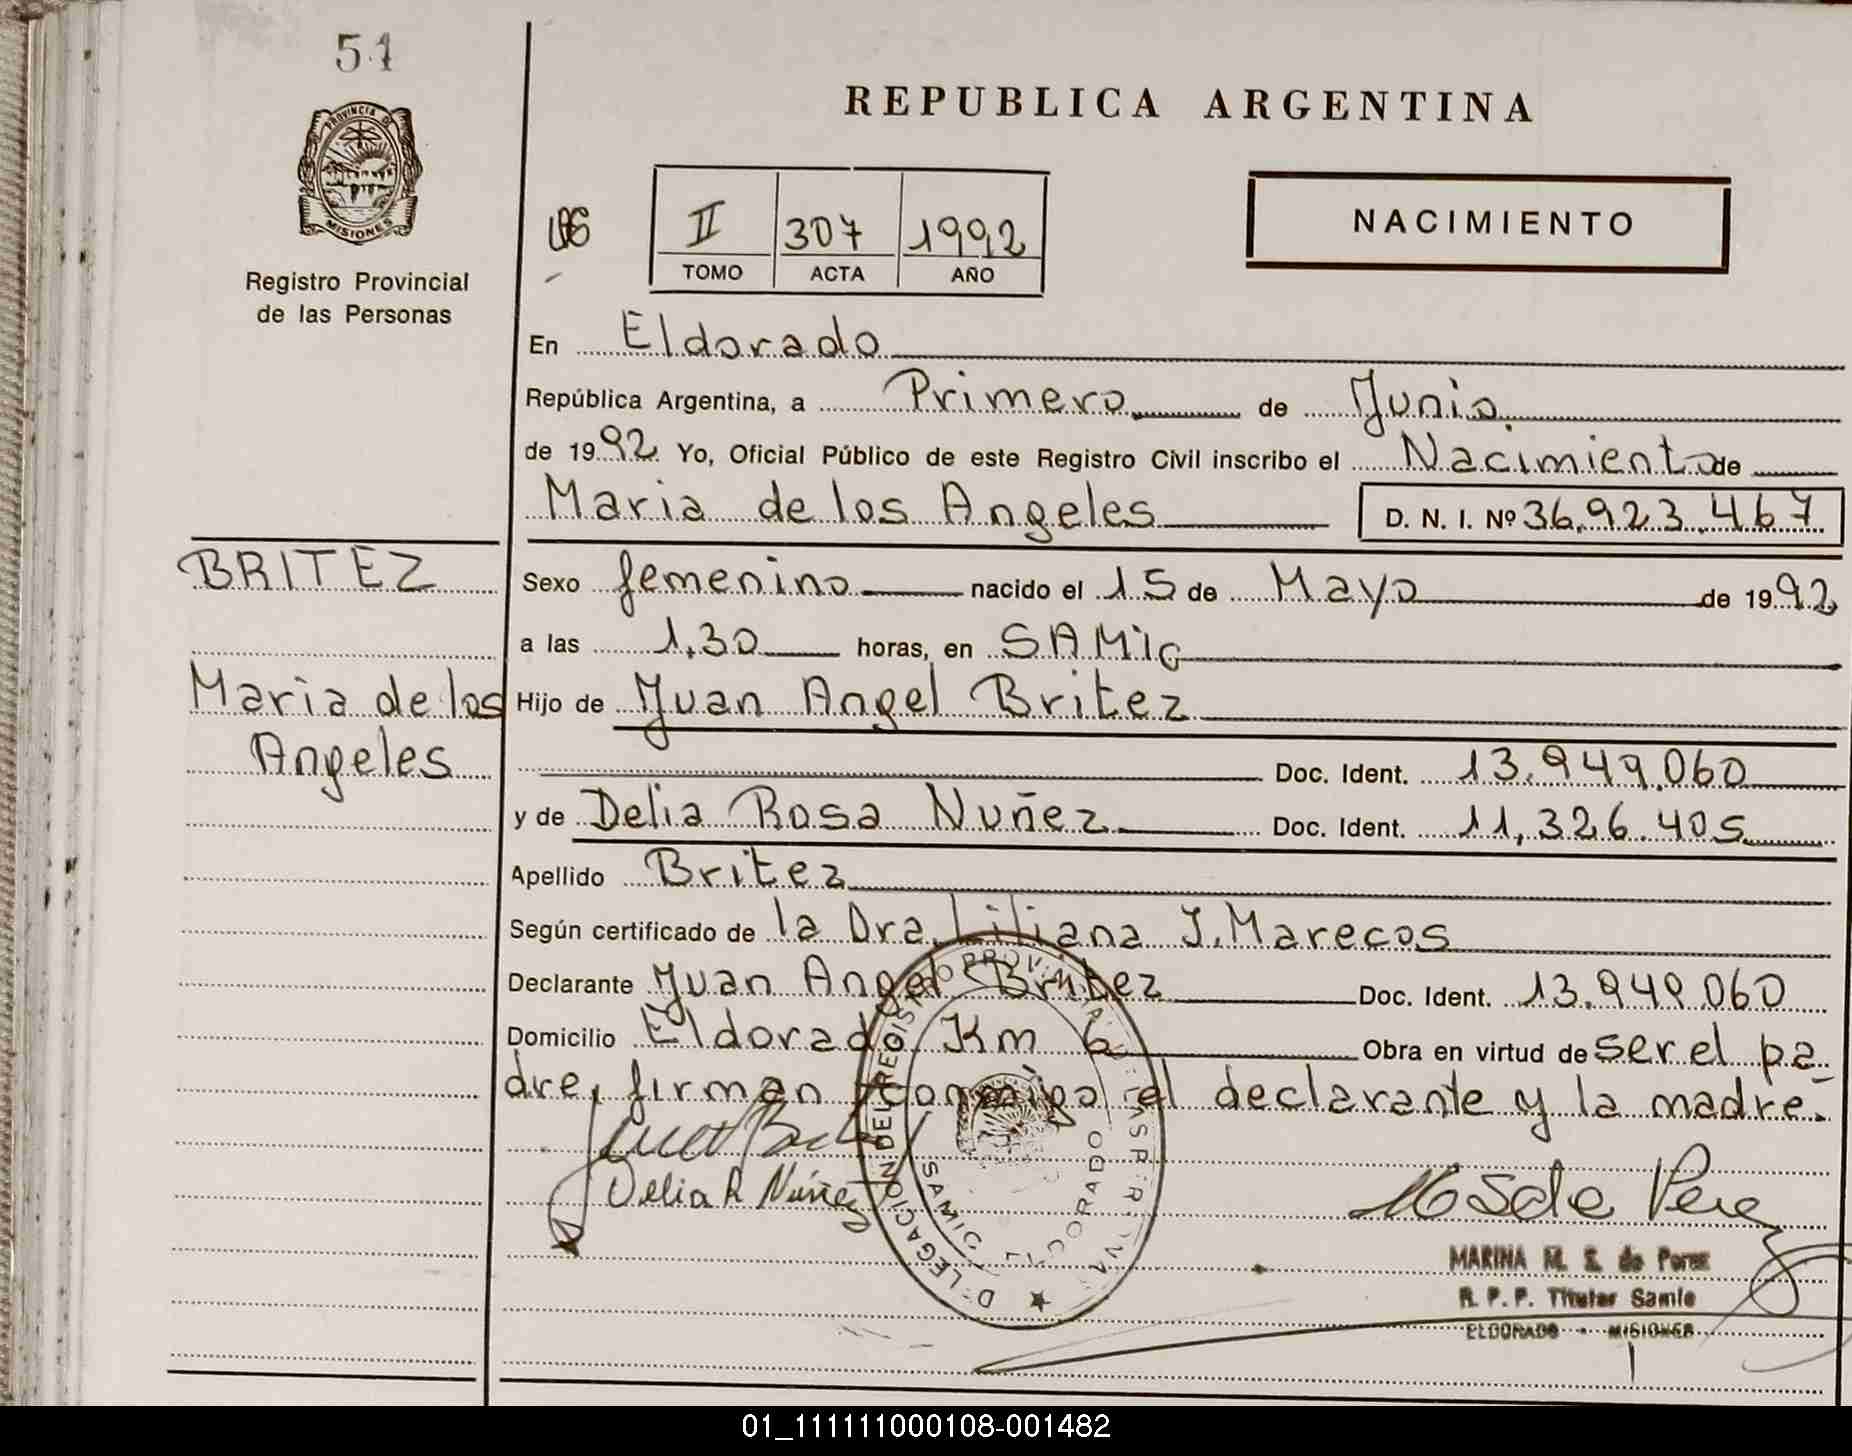 51
PROVINCIA DE
MISIONES
Registro Provincial
de las Personas
REPUBLICA ARGENTINA
II 307 1992
TOMO ACTA AÑO
NACIMIENTO
En Eldorado
República Argentina, a Primero de Junio
de 1992 Yo, Oficial Público de este Registro Civil inscribo el Nacimiento de
Maria de los Angeles D. N. I. Nº 36.923.467
BRITEZ
Maria de los
Angeles
Sexo femenino nacido el 15 de Mayo de 1992
a las 1,30 horas, en SAMiC
Hijo de Juan Angel Britez
Doc. Ident. 13.949.060
y de Delia Rosa Nuñez Doc. Ident. 11,326.405
Apellido Britez
Según certificado de la Dra. Liliana J. Marecos
Declarante Juan Angel Britez Doc. Ident. 13.949.060
Domicilio Eldorado, Km 6 Obra en virtud de ser el pa-
dre, firman conmigo el declarante y la madre.
Delia R Núñez
DELEGACION DEL REGISTRO PROVINCIAL
SAMIC ELDORADO
MARINA M. S. de Perez
R. P. P. Titular Samic
ELDORADO - MISIONES
01_111111000108-001482